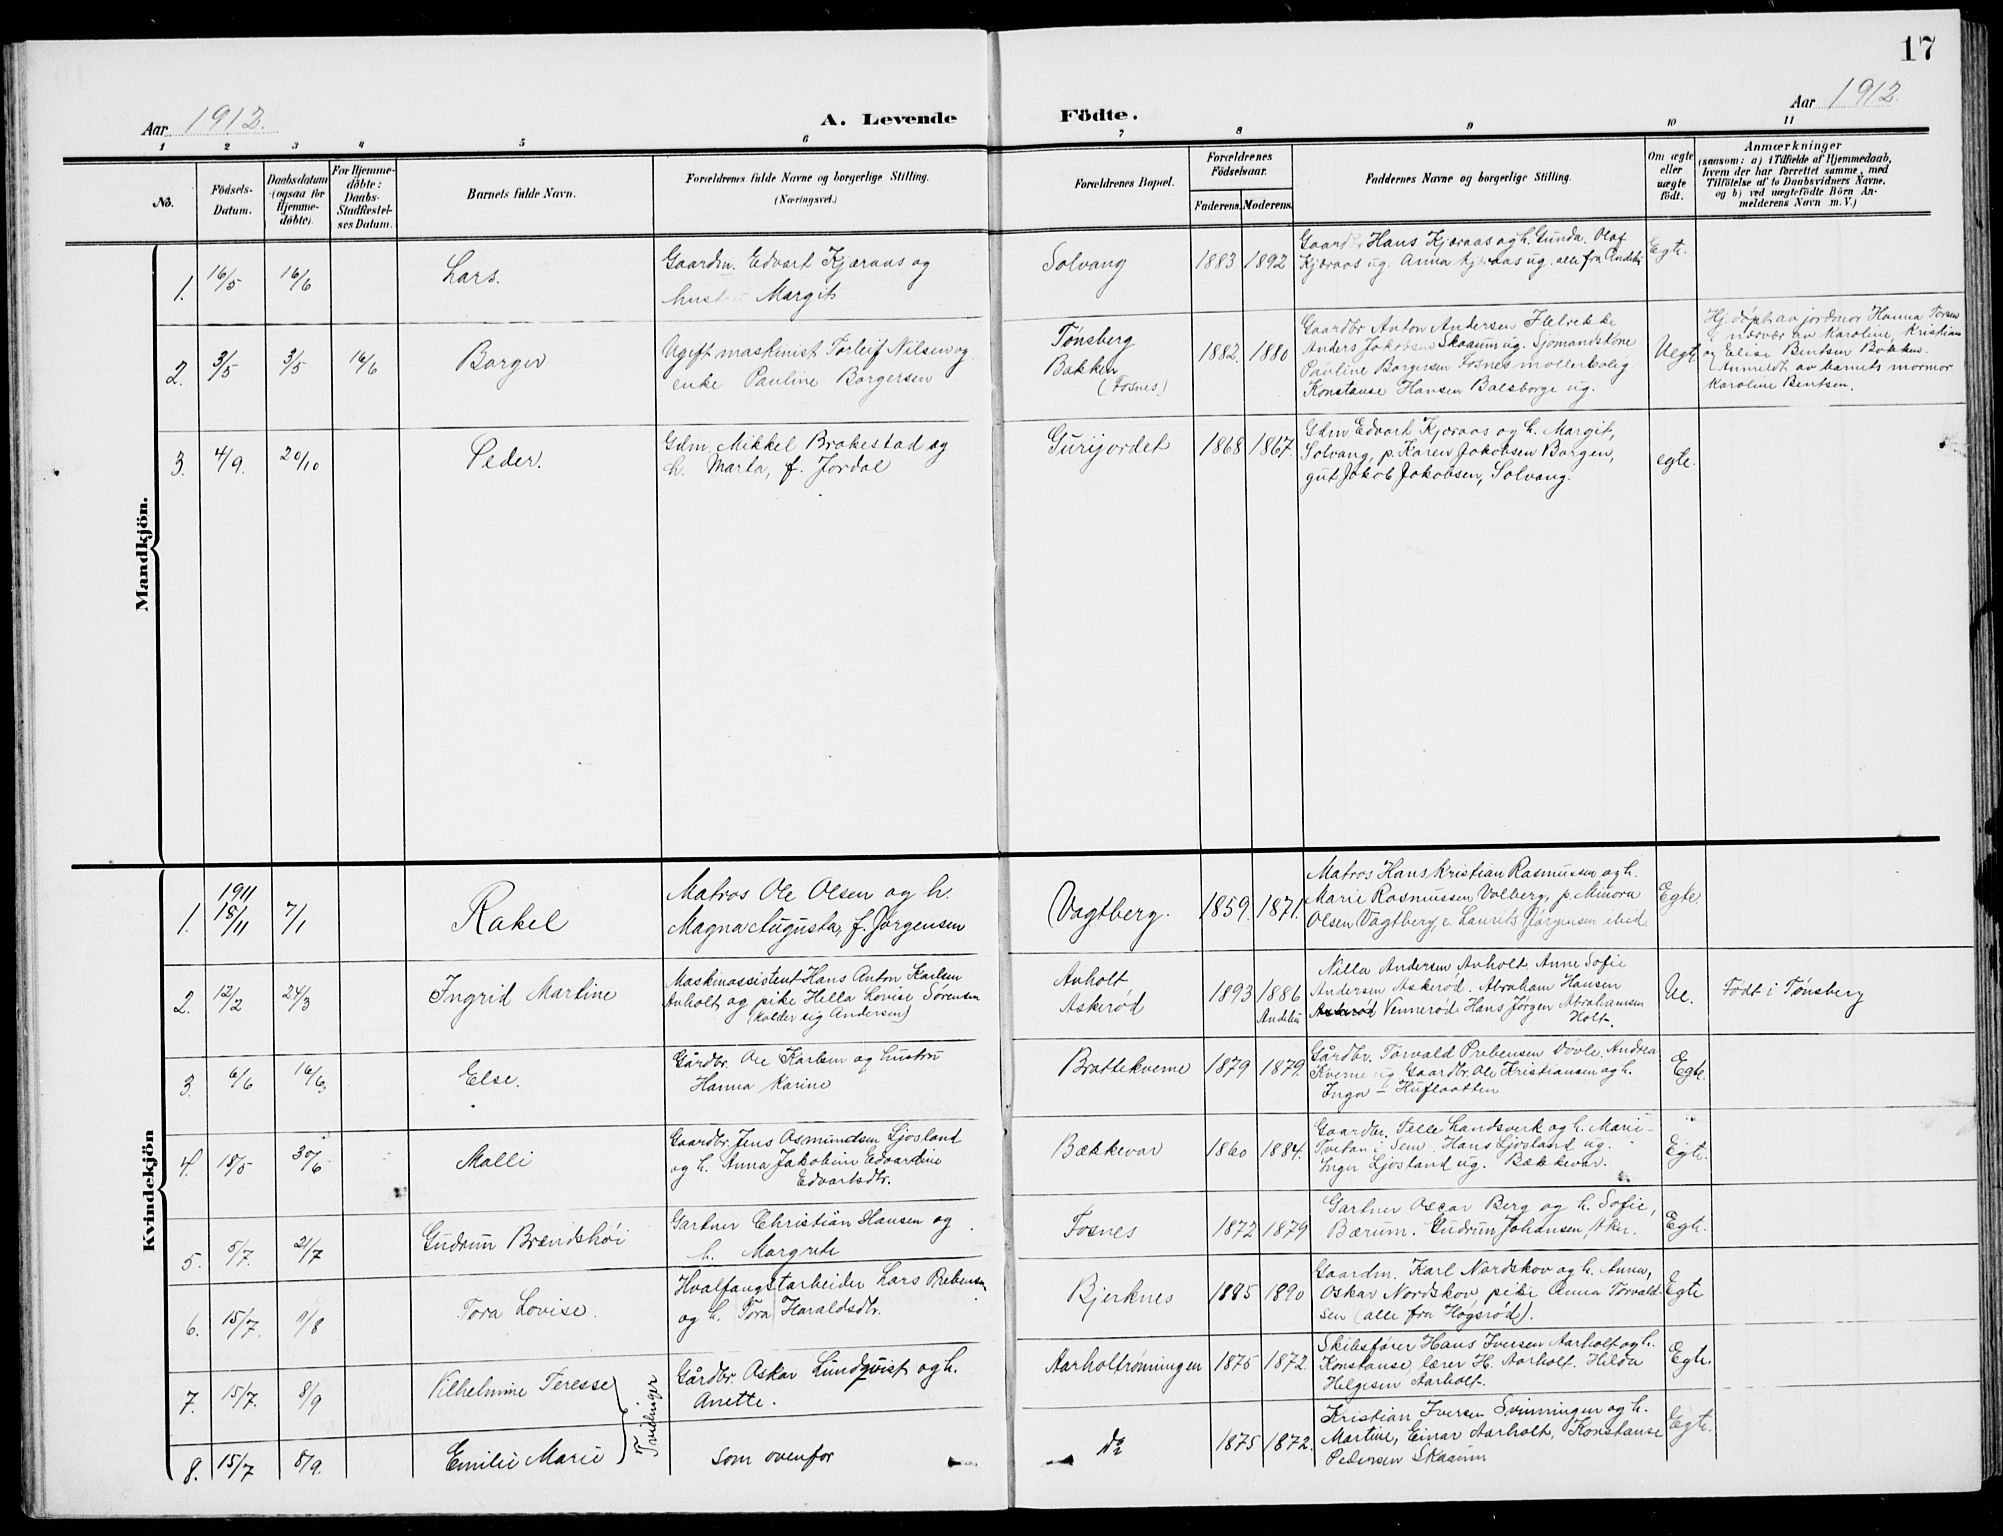 17
Aar 1912.
A. Levende Födte.
Aar 1912.
1 2 3 4 5 6 7 8 9 10 11
No.
Födsels-
Datum.
Daabsdatum
(ogsaa for
Hjemme-
döbte).
For Hjemme-
döbte:
Daabs-
Stadfæstel-
ses Datum.
Barnets fulde Navn.
Forældrenes fulde Navne og borgerlige Stilling.
(Næringsvei.)
Forældrenes Bopæl.
Forældrenes
Födselsaar.
Faderens. Moderens.
Faddernes Navne og borgerlige Stilling.
Om ægte
eller
uægte
födt.
Anmærkninger
(saasom: a) i Tilfælde af Hjemmedaab,
hvem der har forrettet samme, med
Tilföielse af to Daabsvidners Navne,
og b) ved uægtefödte Börn An-
melderens Navn m. V.)
Mandkjön.
1. 16/5 16/6 Lars.
Gaardm. Edvart Kjæraas og
hustru Margit
Solvang
1883 1892
Gaardbr. Hans Kjæraas og h. Gunda. Olaf
Kjæraas ug. Anna Kjæraas ug. alle fra Andebu
Egte.
2. 3/5 3/5 16/6 Borger
Ugift maskinist Torleif Nilsen og
enke Pauline Borgersen
Tønsberg
Bakken
(Fosnes)
1882. 1880
Gaardbr Anton Andersen Helvekke
Anders Jakobsen Skaaum ug. Sjømandskone
Pauline Borgersen Fosnes møllerbolig
Konstanse Hansen Balsborge ug.
Uegte
Hj. døpt av jordmor Hanna Torsen
i nærvær av Karoline, Kristian
og Elise Bentsen Bakken.
Anmeldt av barnets mormor
Karoline Bentsen.
3. 4/9. 20/10 Peder.
Gdm. Mikkel Brakestad og
h. Marta, f. Jordal
Gurijordet
1868 1867
Gdm Edvart Kjæraas og h. Margit,
Solvang, p. Karen Jakobsen Borgen,
gut Jakob Jakobsen, Solvang.
egte.
Kvindekjön
1. 1911
18/11 7/1 Rakel
Matros Ole Olsen og h.
Magna Augusta, f. Jørgensen
Vagtberg.
1859. 1871.
Matros Hans Kristian Rasmussen og h.
Marie Rasmussen Volberg, p. Minora
Olsen Vagtberg, e. Laurits Jørgensen ibid.
Egte
2. 12/2 24/3 Ingrid Martine
Maskinassistent Hans Anton Karlsen
Anholt og pike Hella Lovise Sørensen
(kalder sig Andersen)
Anholt
Askerød
1893 1886
Andebu
Nilla Andersen Anholt. Anne Sofie
Andersen Askerød. Abraham Hansen
Askerød Vennerød. Hans Jørgen Abrahamsen
Holt.
Ue.
Født i Tønsberg
3. 6/6 16/6 Else.
Gårdbr. Ole Karlsen og hustru
Hanna Karine
Brattekverne
1879 1879.
Gårdbr. Torvald Prebensen Døvle. Andrea
Kverne ug Gaardbr. Ole Kristiansen og h.
Inga – Huflaatten
Egte.
4. 18/5 30/6 Malli
Gaardbr. Jens Osmundsen Ljosland
og h. Anna Jakobine Edvardine
Edvartsdtr.
Bækkevar
1860 1884.
Gaardbr. Telle Landsverk og h. Marie –
Tveitan i Sem. Hans Ljosland ug.
Inger Ljosland ug. Bækkevar.
Egte.
5. 5/7. 21/7 Gudrun Brændshøi
Gartner Christian Hansen og
h. Margrete
Fosnes
1872 1879
Gartner Oscar Berg og h. Sofie,
Bærum. Gudrun Johansen, Aker.
Egte.
6. 15/7. 11/8 Tora Lovise.
Hvalfangstarbeider Lars Prebensen
og h. Tora Haraldsdtr.
Bjerknes
1885 1890
Gaardm. Karl Nordskov og h. Anna,
Oskar Nordskov, pike Anna Torvald-
sen (alle fra Høgsrød).
Egte
7. 15/7. 8/9 Vilhelmine Teresse
Tvillinger
Gårdbr. Oskar Lundquist og h.
Anette.
Aarholtrønningen
1875 1872.
Skibsfører Hans Iversen Aarholt og h.
Konstanse, lærer H. Aarholt. Hilda
Helgesen Aarholt.
Egte.
8. 15/7 8/9. Emilie Marie
som ovenfor
do
1875 1872.
Kristian Iversen Svinningen og h.
Martine, Einar Aarholt, Konstanse
Pedersen Skaaum
Egte.